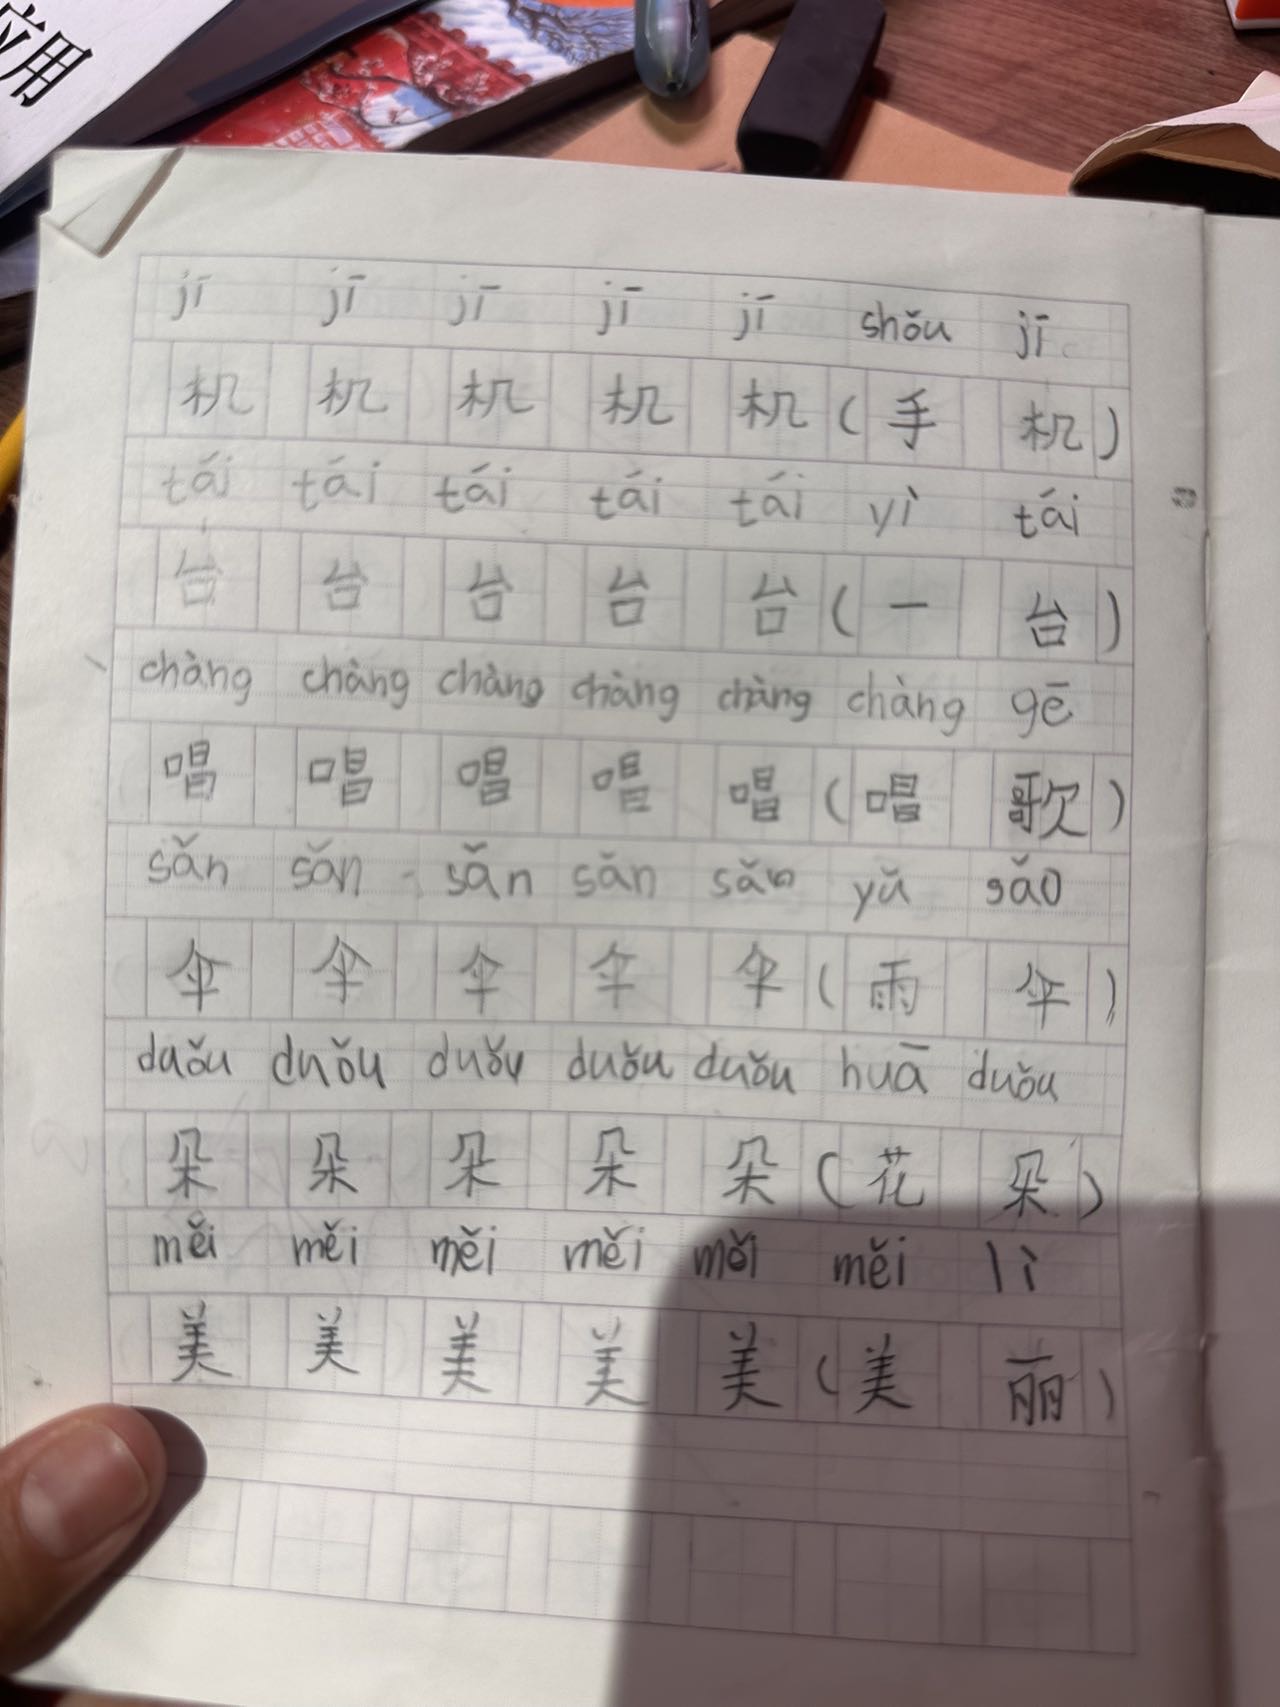 应用
jī jī jī jī jī shǒu jī
机 机 机 机 机 ( 手 机 )
tái tái tái tái tái yì tái
台 台 台 台 台 ( 一 台 )
chàng chàng chàng chàng chàng chàng gē
唱 唱 唱 唱 唱 ( 唱 歌 )
sǎn sǎn sǎn sǎn sǎn yǔ sǎo
伞 伞 伞 伞 伞 ( 雨 伞 )
duǒu duǒu duǒu duǒu duǒu huā duǒu
朵 朵 朵 朵 朵 ( 花 朵 )
měi měi měi měi měi měi lì
美 美 美 美 美 ( 美 丽 )